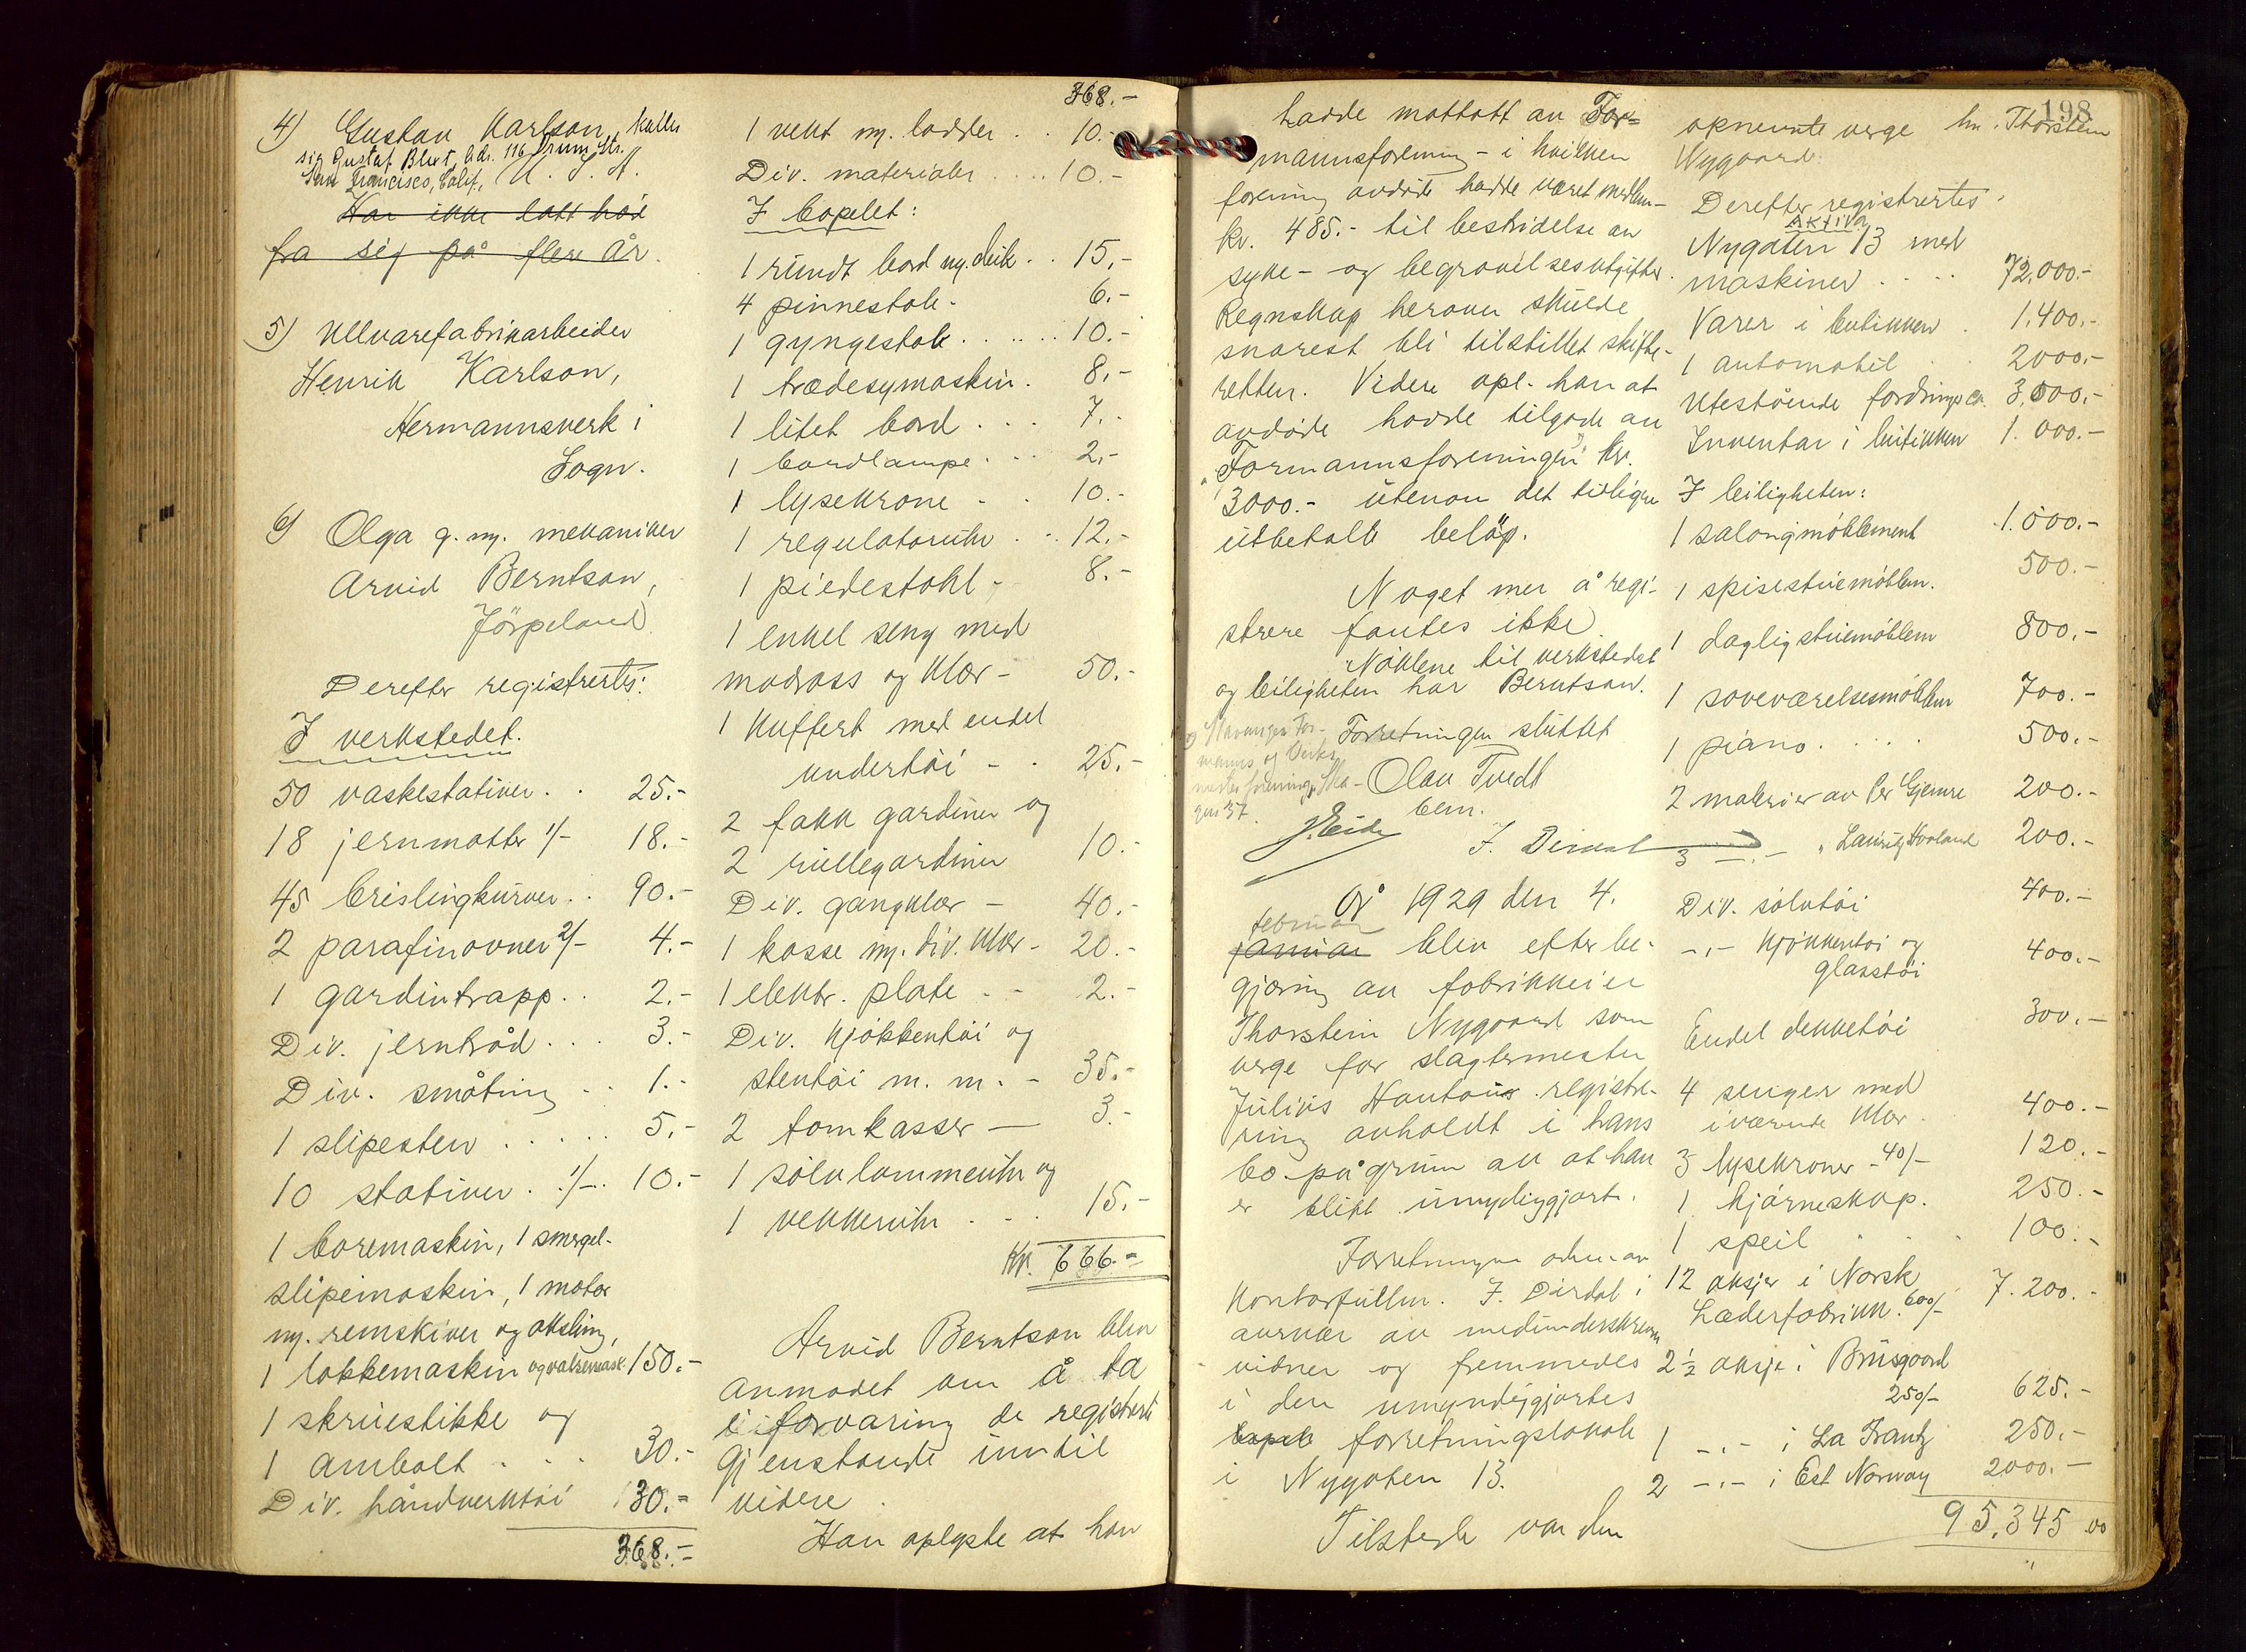 4) Gustav Karlson, kaller
sig Gustaf Blixt, adr. 116 Drum Str.
San Francisco, Calif., U. S. A.
Har ikke latt høre
fra sig på flere år.
5) Ullvarefabrikarbeider
Henrik Karlson,
Hermannsverk i
Sogn.
6) Olga g. m. mekaniker
Arvid Berntson,
Jörpeland
Derefter registrertes:
I verkstedet.
50 vaskestativer . . 25.-
18 jernmatter 1/- 18.-
45 brislingkurver . . 90.-
2 parafinovner 2/- 4.-
1 gardintrapp . . 2.-
Div. jerntråd . . . 3.-
Div. småting . . 1.-
1 slipesten . . . . . 5.-
10 stativer . 1/- . 10.-
1 boremaskin, 1 smergel-
slipemaskin, 1 motor
m. remskiver og aksling,
1 lokkemaskin og valsemask. 150.-
1 skruestikke og
1 ambolt . . . 30.-
Div. håndverktøi 30.-
368.-
368.-
1 vekt m. lodder . . 10.-
Div. materialer . . . . 10.-
I bopelet:
1 rundt bord m. duk . . 15.-
4 pinnestole - 6.-
1 gyngestol . . . . . . 10.-
1 trædesymaskin . 8.-
1 litet bord . . . 7.-
1 bordlampe . . . 2.-
1 lysekrone - . 10.-
1 regulatoruhr . . . 12.-
1 piedestahl - 8.-
1 enkel seng med
madrass og klær - 50.-
1 kuffert med endel
undertøi - . 25.-
2 fakk gardiner og
2 rullegardiner 10.-
Div. gangklær - 40.-
1 kasse m. div. klær - 20.-
1 elektr. plate . - 2.-
Div. kjøkkentøi og
stentøi m. m. - 35.-
2 tomkasser — 3.-
1 sølvlommeuhr og
1 vekkeruhr . - . 15.-
Kr. 666.-
Arvid Berntson blev
anmodet om å ta
i forvaring de registrerte
gjenstande inntil
videre.
Han oplyste at han
hadde mottatt av For=
mannsforening - i hvilken
forening avdøde hadde været medlem -
kr. 485.- til bestridelse av
syke- og begravelsesutgifter.
Regnskap herover skulde
snarest bli tilstillet skifte-
retten. Videre opl. han at
avdøde hadde tilgode av
"Formannsforeningen" kr.
3000.- utenom det tidligere
utbetalte beløp.
Noget mer å regi-
strere fantes ikke.
Nøklene til verkstedet
og leiligheten har Berntson.
Stavanger For-
manns og Verks
mester forening,
gen 37.
Forretningen sluttet
Olav Tvedt
bem.
J. Eide
J. Dirdal
År 1929 den 4.
februar
januar blev efter be-
gjæring av fabrikkeier
Thorstein Nygaard som
verge for slagtermester
Julius Hantous registre-
ring avholdt i hans
bo på grunn av at han
er blitt umyndiggjort.
Forretningen adm. av
kontorfullm. J. Dirdal i
nærvær av medunderskrevne
vidner og fremmedes
i den umyndiggjortes
bopel forretningslokale
i Nygaten 13.
Tilstede var den
198
opnevnte verge hr. Thorstein
Nygaard.
Derefter registrertes.
Aktiva
Nygaten 13 med
maskiner . . . . 72,000.-
Varer i butikken . 1,400.-
1 automobil . . 2000.-
Utestående fordringer ca. 3,000.-
Inventar i butikken 1.000.-
I leiligheten:
1 salongmøblement 1.000.-
1 spisestuemøblem. 500.-
1 dagligstuemøblem 800.-
1 soveværelsesmøblem 700.-
1 piano . . . . 500.-
2 malerier av Per Gjemre 200.-
3 -"- " Lauritz Haaland 200.-
Div. sølvtøi 400.-
-"- kjøkkentøi og
glasstøi 400.-
Endel dekketøi 300.-
4 senger med
iværende klær . 400.-
3 lysekroner - 40/- 120.-
1 hjørneskap. 250.-
1 speil . . . 100.-
12 aksjer i Norsk
Læderfabrikk. 600/- 7.200.-
2½ aksje i Brusgaard
250/- 625.-
1 -"- i La Frantz 250.-
2 -"- i Est Norway 2000.-
95,345.00